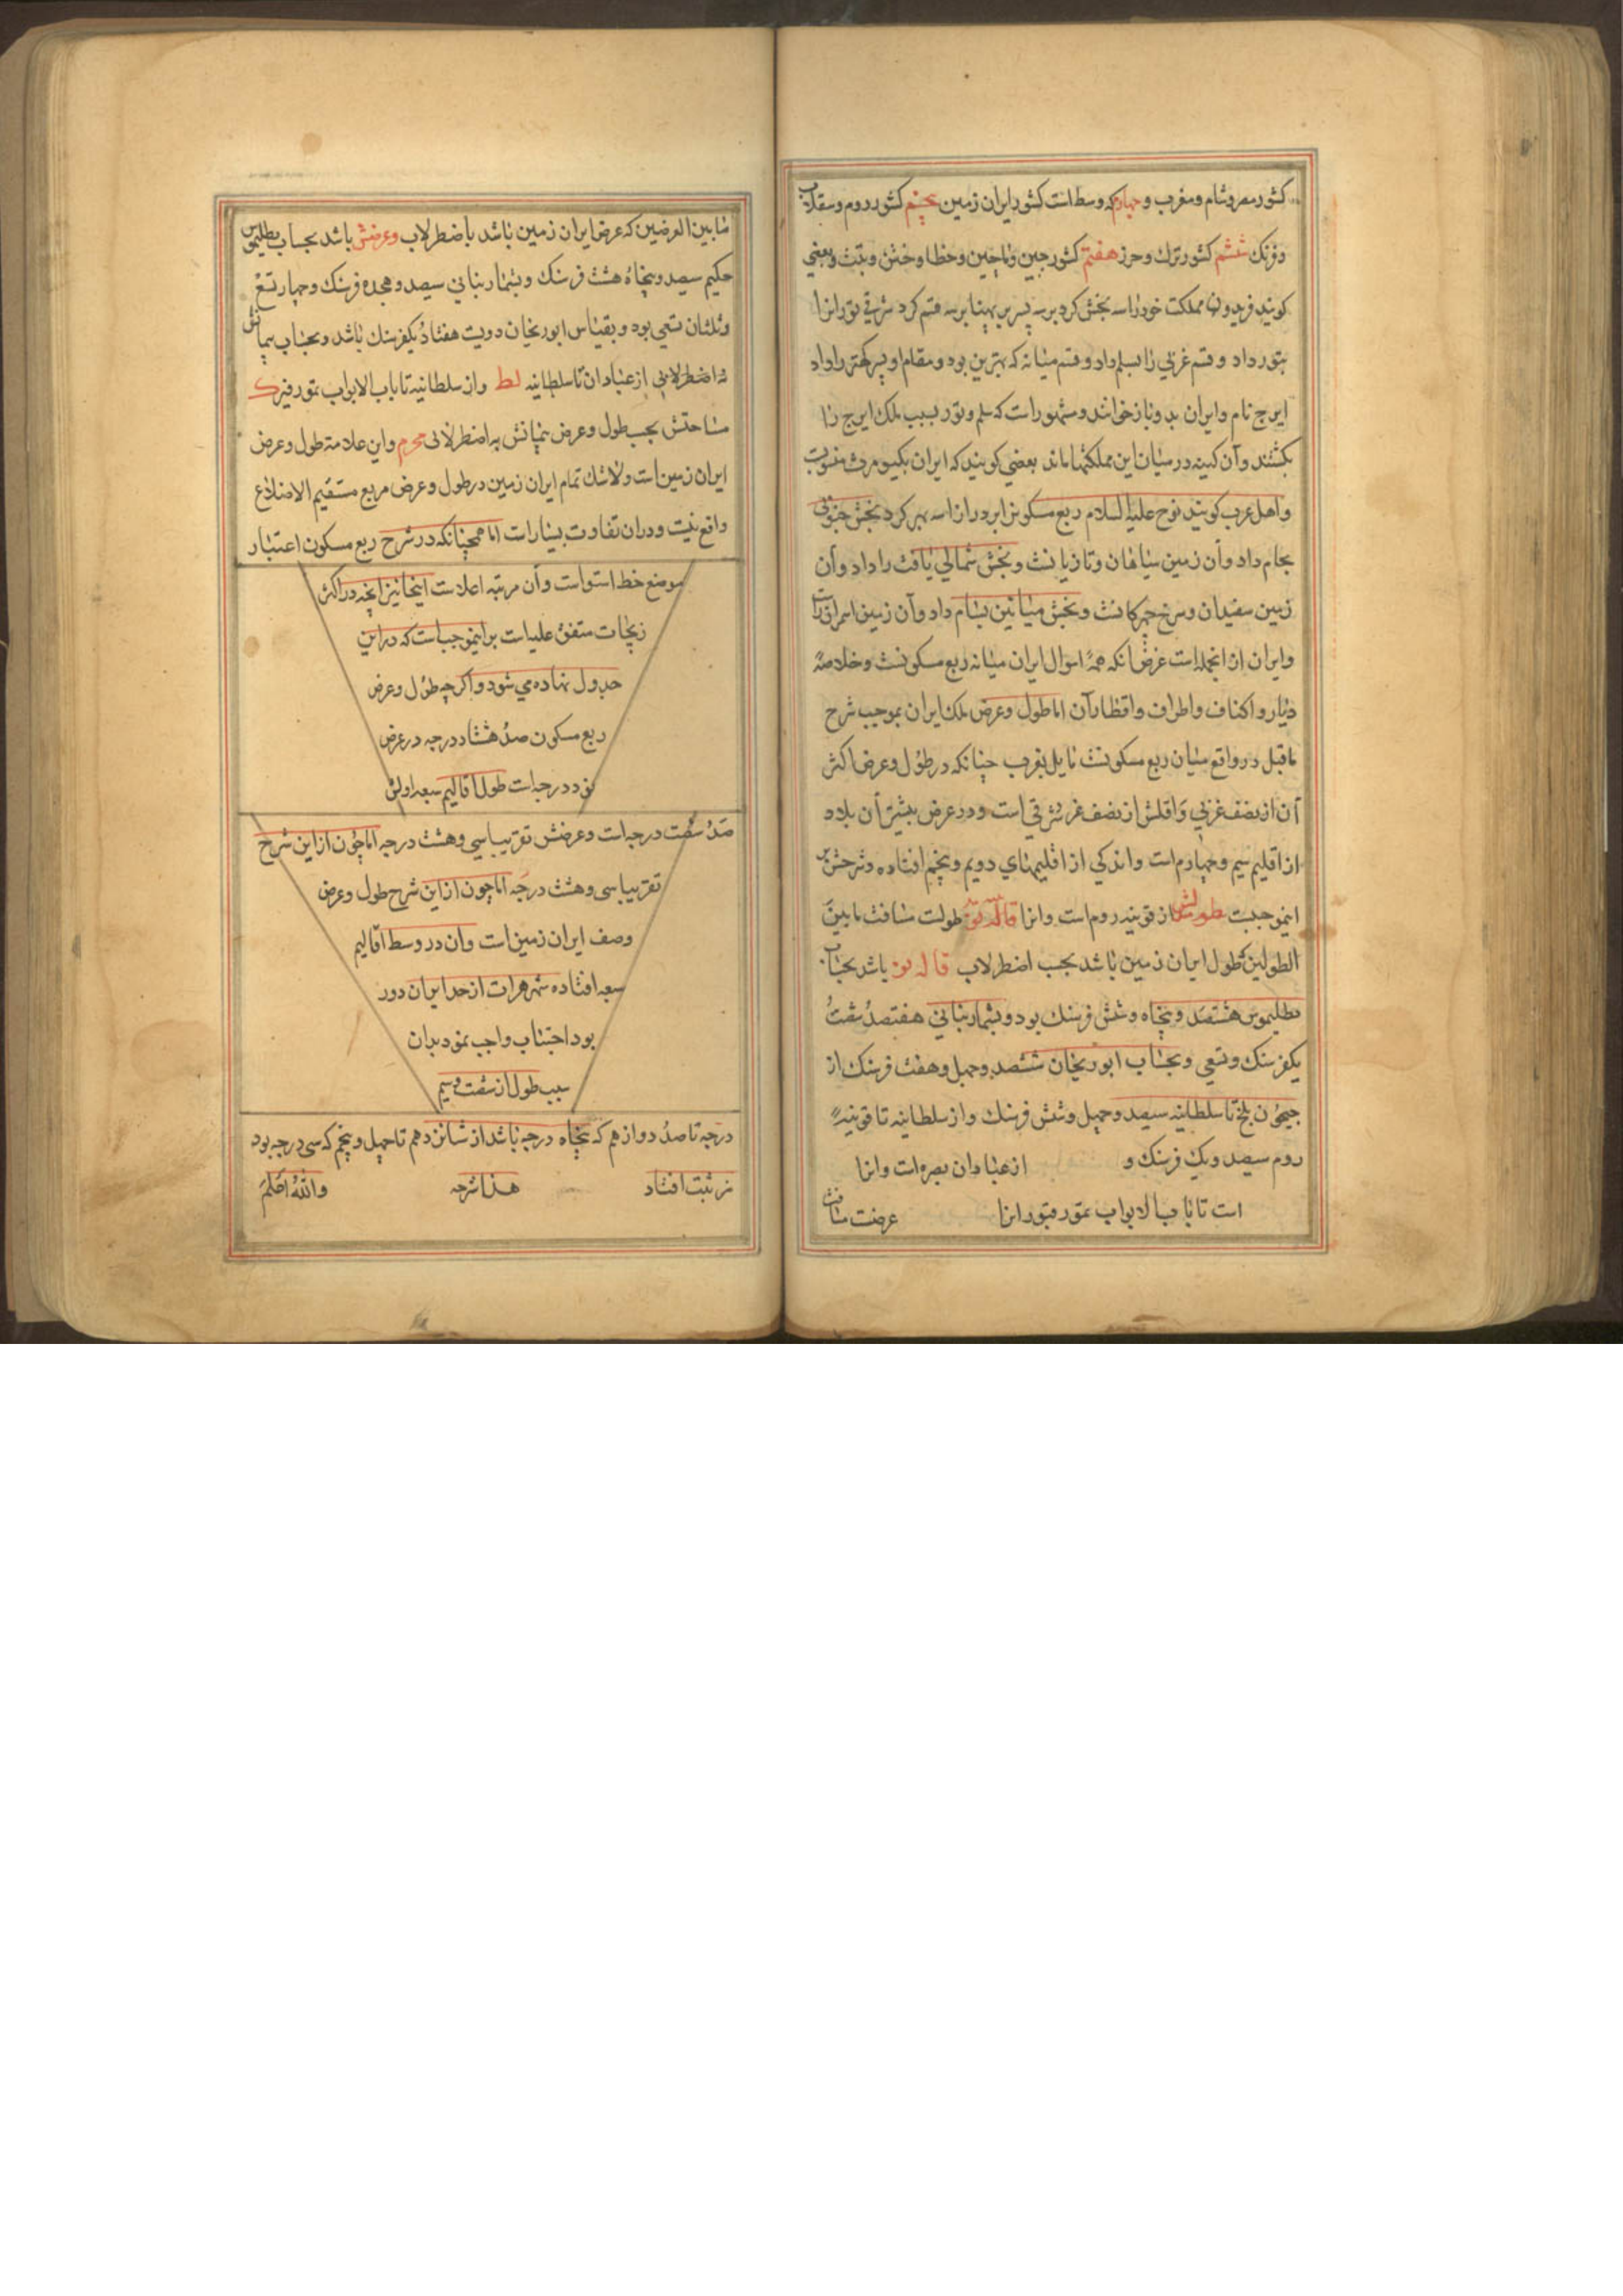 کشور مصر و شام و مغرب و چهارم که وسط است کشور ایران زمین پنجم کشور روم و سقلاب
و فرنک ششم کشور ترك و خرز هفتم کشور چین و ماچین و خطا و ختن و تبت و بعضی
کویند فریدون مملکت خود را سه بخش کرد بر سه پسر بپهنا بر سه قسم کرد شرقی تورانرا
بتور داد و قسم غربی را بسلم داد و قسم میانه که بهترین بود و مقام او پسر کهتر را داد
ایرج نام و ایران بدو باز خوانند و مشهور است که سلم و تور بسبب ملك ایرج را
بکشتند و آن کینه در میان این مملکتها بماند بعضی کویند که ایران بکیومرث منسوب
و اهل عرب کویند نوح علیه السلام ربع مسکون را بر درازا سه بهر کرد بخش جنوبی
بحام داد و آن زمین سیاهان و تازیانست و بخش شمالی یافث را داد و آن
زمین سفیدان و سرخ چهرکانست و بخش میانین بسام داد و آن زمین اسمران است
و ایران از انجمله است غرض آنکه همه احوال ایران میانه ربع مسکونست و خلاصه
دیار و اکناف و اطراف و اقطار آن اما طول و عرض ملك ایران بموجب شرح
ماقبل در واقع میان ربع مسکونست مایل بغرب چنانکه در طول و عرض اکثر
آن از نصف غربی و اقلش از نصف شرقی است و در عرض بیشتر آن بلاد
از اقلیم سیم و چهارم است و اندکی از اقلیمهای دویم و پنجم افتاده و شرحش بر
اینموجبست طولش از قونیه روم است و انرا طولست مسافت مابین
الطولین که طول ایران زمین باشد بحسب اضطرلاب باشد بحساب
بطلیموس هشتصد و پنجاه و شش فرسنك بود و بشمار بتانی هفتصد شصت
یکفرسنك و تسعی و بحساب ابوریحان ششصد و چهل و هفت فرسنك از
جیحون بلخ تا سلطانیه سیصد و چهل و شش فرسنك و از سلطانیه تا قونیه
روم سیصد و یك فرسنك و از عبادان بصره است و انرا
است تا باب الابواب بتمور قبور انرا عرضت مسافت
مابین العرضین که عرض ایران زمین باشد باضطرلاب و عرضش باشد بحساب بطلیموس
حکیم سیصد و پنجاه هشت فرسنك و بشمار بتانی سیصد و هجده فرسنك و چهار تسع
و ثلثان تسعی بود و بقیاس ابوریحان دویست هفتاد یکفرسنك باشد و بحساب
اضطرلابی از عبادان تا سلطانیه لط و از سلطانیه تا باب الابواب
مساحتش بحسب طول و عرض به اضطرلابی و این علامت طول و عرض
ایران زمین است و لاشك تمام ایران زمین در طول و عرض مربع مستقیم الاضلاع
واقع نیست و در آن تفاوت بسیار است اما همچنانکه در شرح ربع مسکون اعتبار
موضع خط استواست و آن مرتبه اعلاست اینجا نیز آنچه در اکثر
زیجات متفق علیه است بر اینموجب است که در این
جدول نهاده می شود و اکرچه طول و عرض
ربع مسکون صد هشتاد درجه در عرض
نود درجه است طول اقالیم سبعه اولش
صد شصت درجه است و عرضش تقریبا سی و هشت درجه اما چون از این شرح
تقریبا سی و هشت درجه اما چون از این شرح طول و عرض
وصف ایران زمین است و آن در وسط اقالیم
سبعه افتاده شهر هرات از حد ایران دور
بود اجتناب واجب نمود بدان
سبب طول از شصت و سیم
درجه تا صد دوازدهم که پنجاه درجه باشد از شانزدهم تا چهل و پنجم که سی درجه بود
ثبت افتاد هذا شرحه والله اعلم